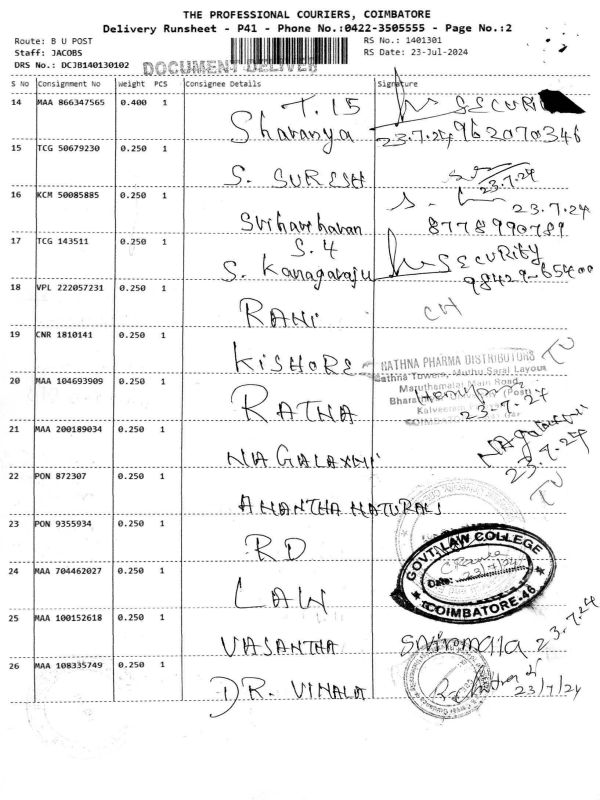 THE PROFESSIONAL COURIERS, COIMBATORE
Delivery Runsheet - P41 - Phone No.:0422-3505555 - Page No.:2
Route: B U POST RS No.: 1401301
Staff: JACOBS RS Date: 23-Jul-2024
DRS No.: DCJB140130102 DOCUMENT
S No Consignment No Weight PCS Consignee Details Signature
14 MAA 866347565 0.400 1 T. 15 SECURI
Sharanya 23.7.24 962070346
15 TCG 50679230 0.250 1
S. SURESH 23.7.24
16 KCM 50085885 0.250 1 23.7.24
8778990789
17 TCG 143511 0.250 1 S. 4 SECURITY
S. Kanagaraju 98429-65400
18 VPL 222057231 0.250 1
RANI CH
19 CNR 1810141 0.250 1
KISHORE TU
RATHNA PHARMA DISTRIBUTORS
Rathna Towers, Muthu Saraj Layout
20 MAA 104693909 0.250 1 Maruthamalai Main Road,
RATNA 23-7-24
21 MAA 200189034 0.250 1
NAGALAXMI 23.7.24
22 PON 872307 0.250 1 TU
ANANTHA NATURALS
23 PON 9355934 0.250 1
RD GOVT LAW COLLEGE
24 MAA 704462027 0.250 1 Date: 23/7/24
LAW COIMBATORE-46
25 MAA 100152618 0.250 1
VASANTHA 23.7.24
26 MAA 108335749 0.250 1
DR. VIMALA 23/7/24